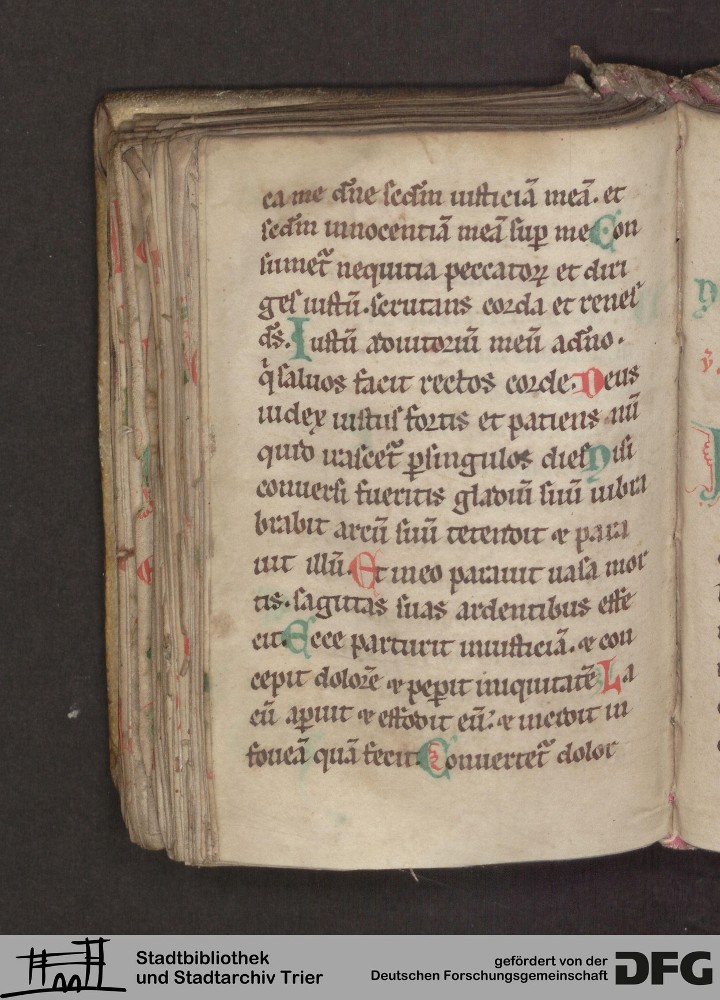 ca me dn̄e scd̄m iusticiā meā. et
scd̄m innocentiā meā sup̱ me Con
sumet᷑ nequitia peccatoꝝ et diri
ges iustū. scrutans corda et renes
ds̄. Iustū adiutoriū meū a dn̄o.
q̇ saluos facit rectos corde. Deus
iudex iustus fortis et patiens nū
quid irascet᷑ ꝑ singulos dies Nisi
conuersi fueritis gladiū suū uibra
brabit arcū suū tetendit ⁊ para
uit illū. Et in eo parauit uasa mor
tis. sagittas suas ardentibus effe
cit. Ecce parturit iniusticiā. ⁊ con
cepit dolorē ⁊ peperit iniquitatē La
cū aꝑuit ⁊ effodit eū. ⁊ incidit in
foueā quā fecit. Conuertet᷑ dolor
Stadtbibliothek
und Stadtarchiv Trier
gefördert von der
Deutschen Forschungsgemeinschaft
DFG